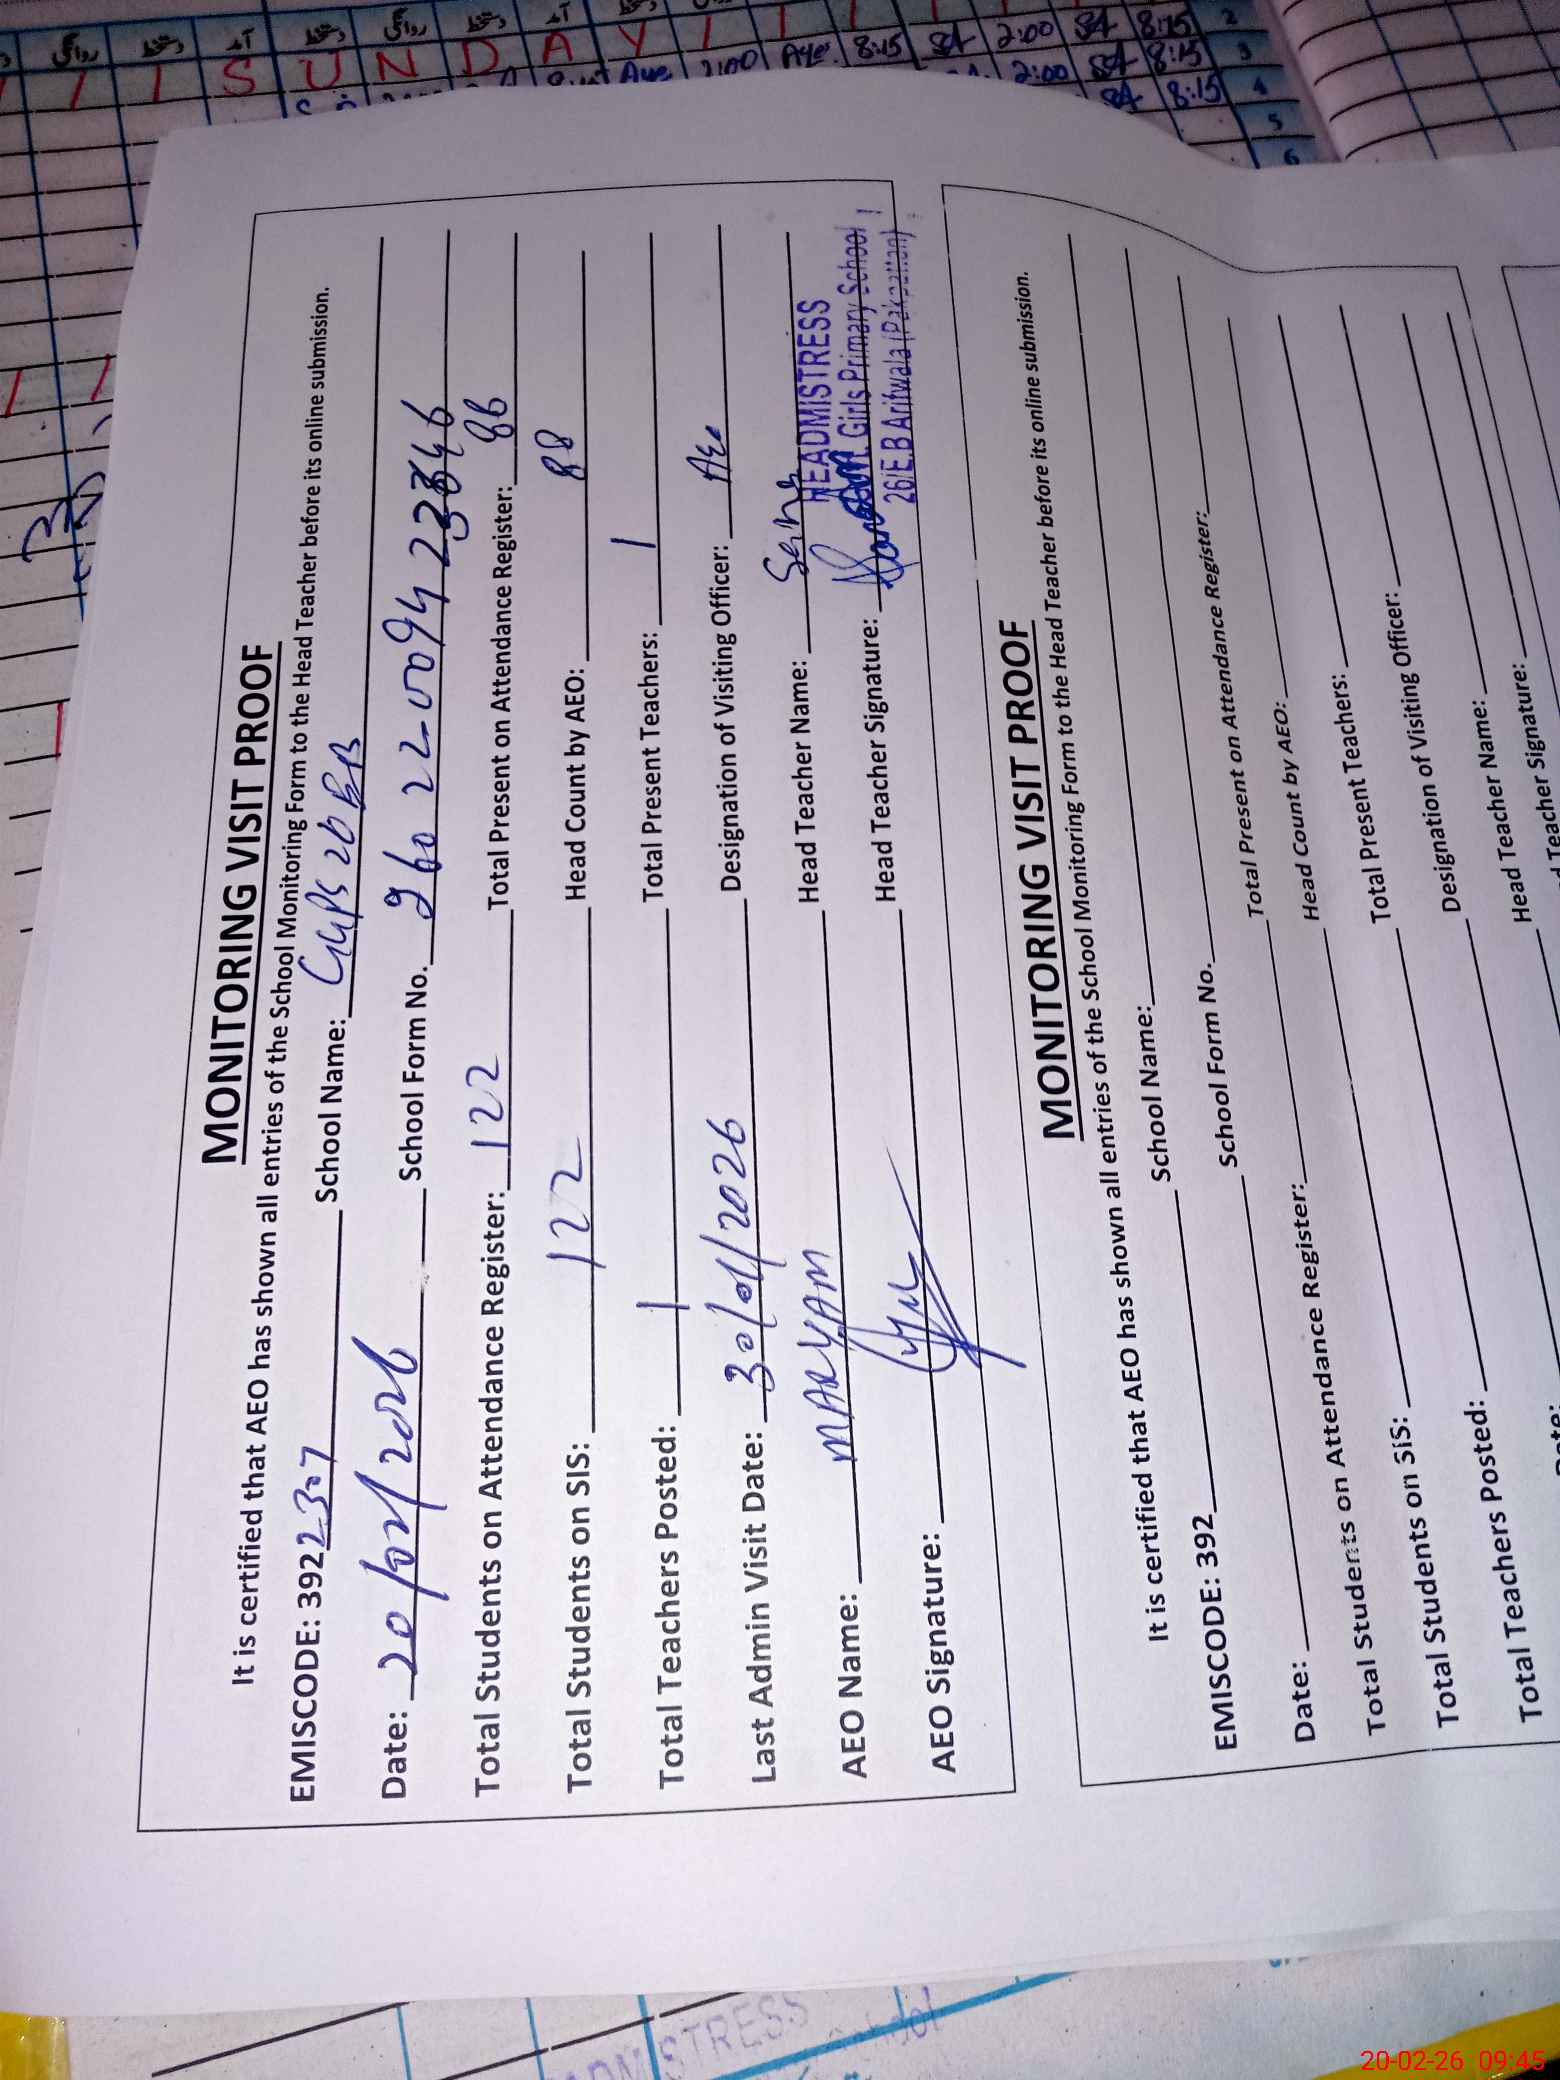 MONITORING VISIT PROOF
It is certified that AEO has shown all entries of the School Monitoring Form to the Head Teacher before its online submission.
EMISCODE: 39222307 School Name: GGPS 26 EB
Date: 20/02/2026 School Form No. 26022-0094 23346
Total Students on Attendance Register: 122 Total Present on Attendance Register: 86
Total Students on SIS: 122 Head Count by AEO: 88
Total Teachers Posted: 1 Total Present Teachers: 1
Last Admin Visit Date: 30/01/2026 Designation of Visiting Officer: AEO
AEO Name: MARYAM Head Teacher Name:
AEO Signature: Head Teacher Signature:
HEADMISTRESS
Girls Primary School
26/E.B Arifwala (Pakpattan)
MONITORING VISIT PROOF
It is certified that AEO has shown all entries of the School Monitoring Form to the Head Teacher before its online submission.
EMISCODE: 392 School Name:
Date: School Form No.
Total Students on Attendance Register: Total Present on Attendance Register:
Total Students on SIS: Head Count by AEO:
Total Teachers Posted: Total Present Teachers:
Designation of Visiting Officer:
Head Teacher Name:
Teacher Signature:
SUNDAY
2:00 8:15 2
2:00 8:15 3
8:15 4
5
6
20-02-26 09:45